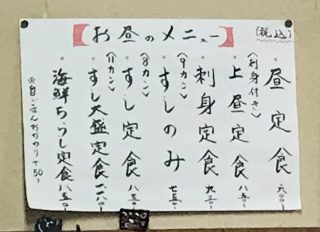 お昼のメニュー
(税込)
昼定食 六〇〇-
(刺身付き)
上昼定食 八五〇-
刺身定食 九五〇-
(9カン)
すしのみ 七五〇-
(8カン)
すし定食 八五〇-
(11カン)
すし大盛定食 一一八〇-
海鮮ちらし定食 八五〇-